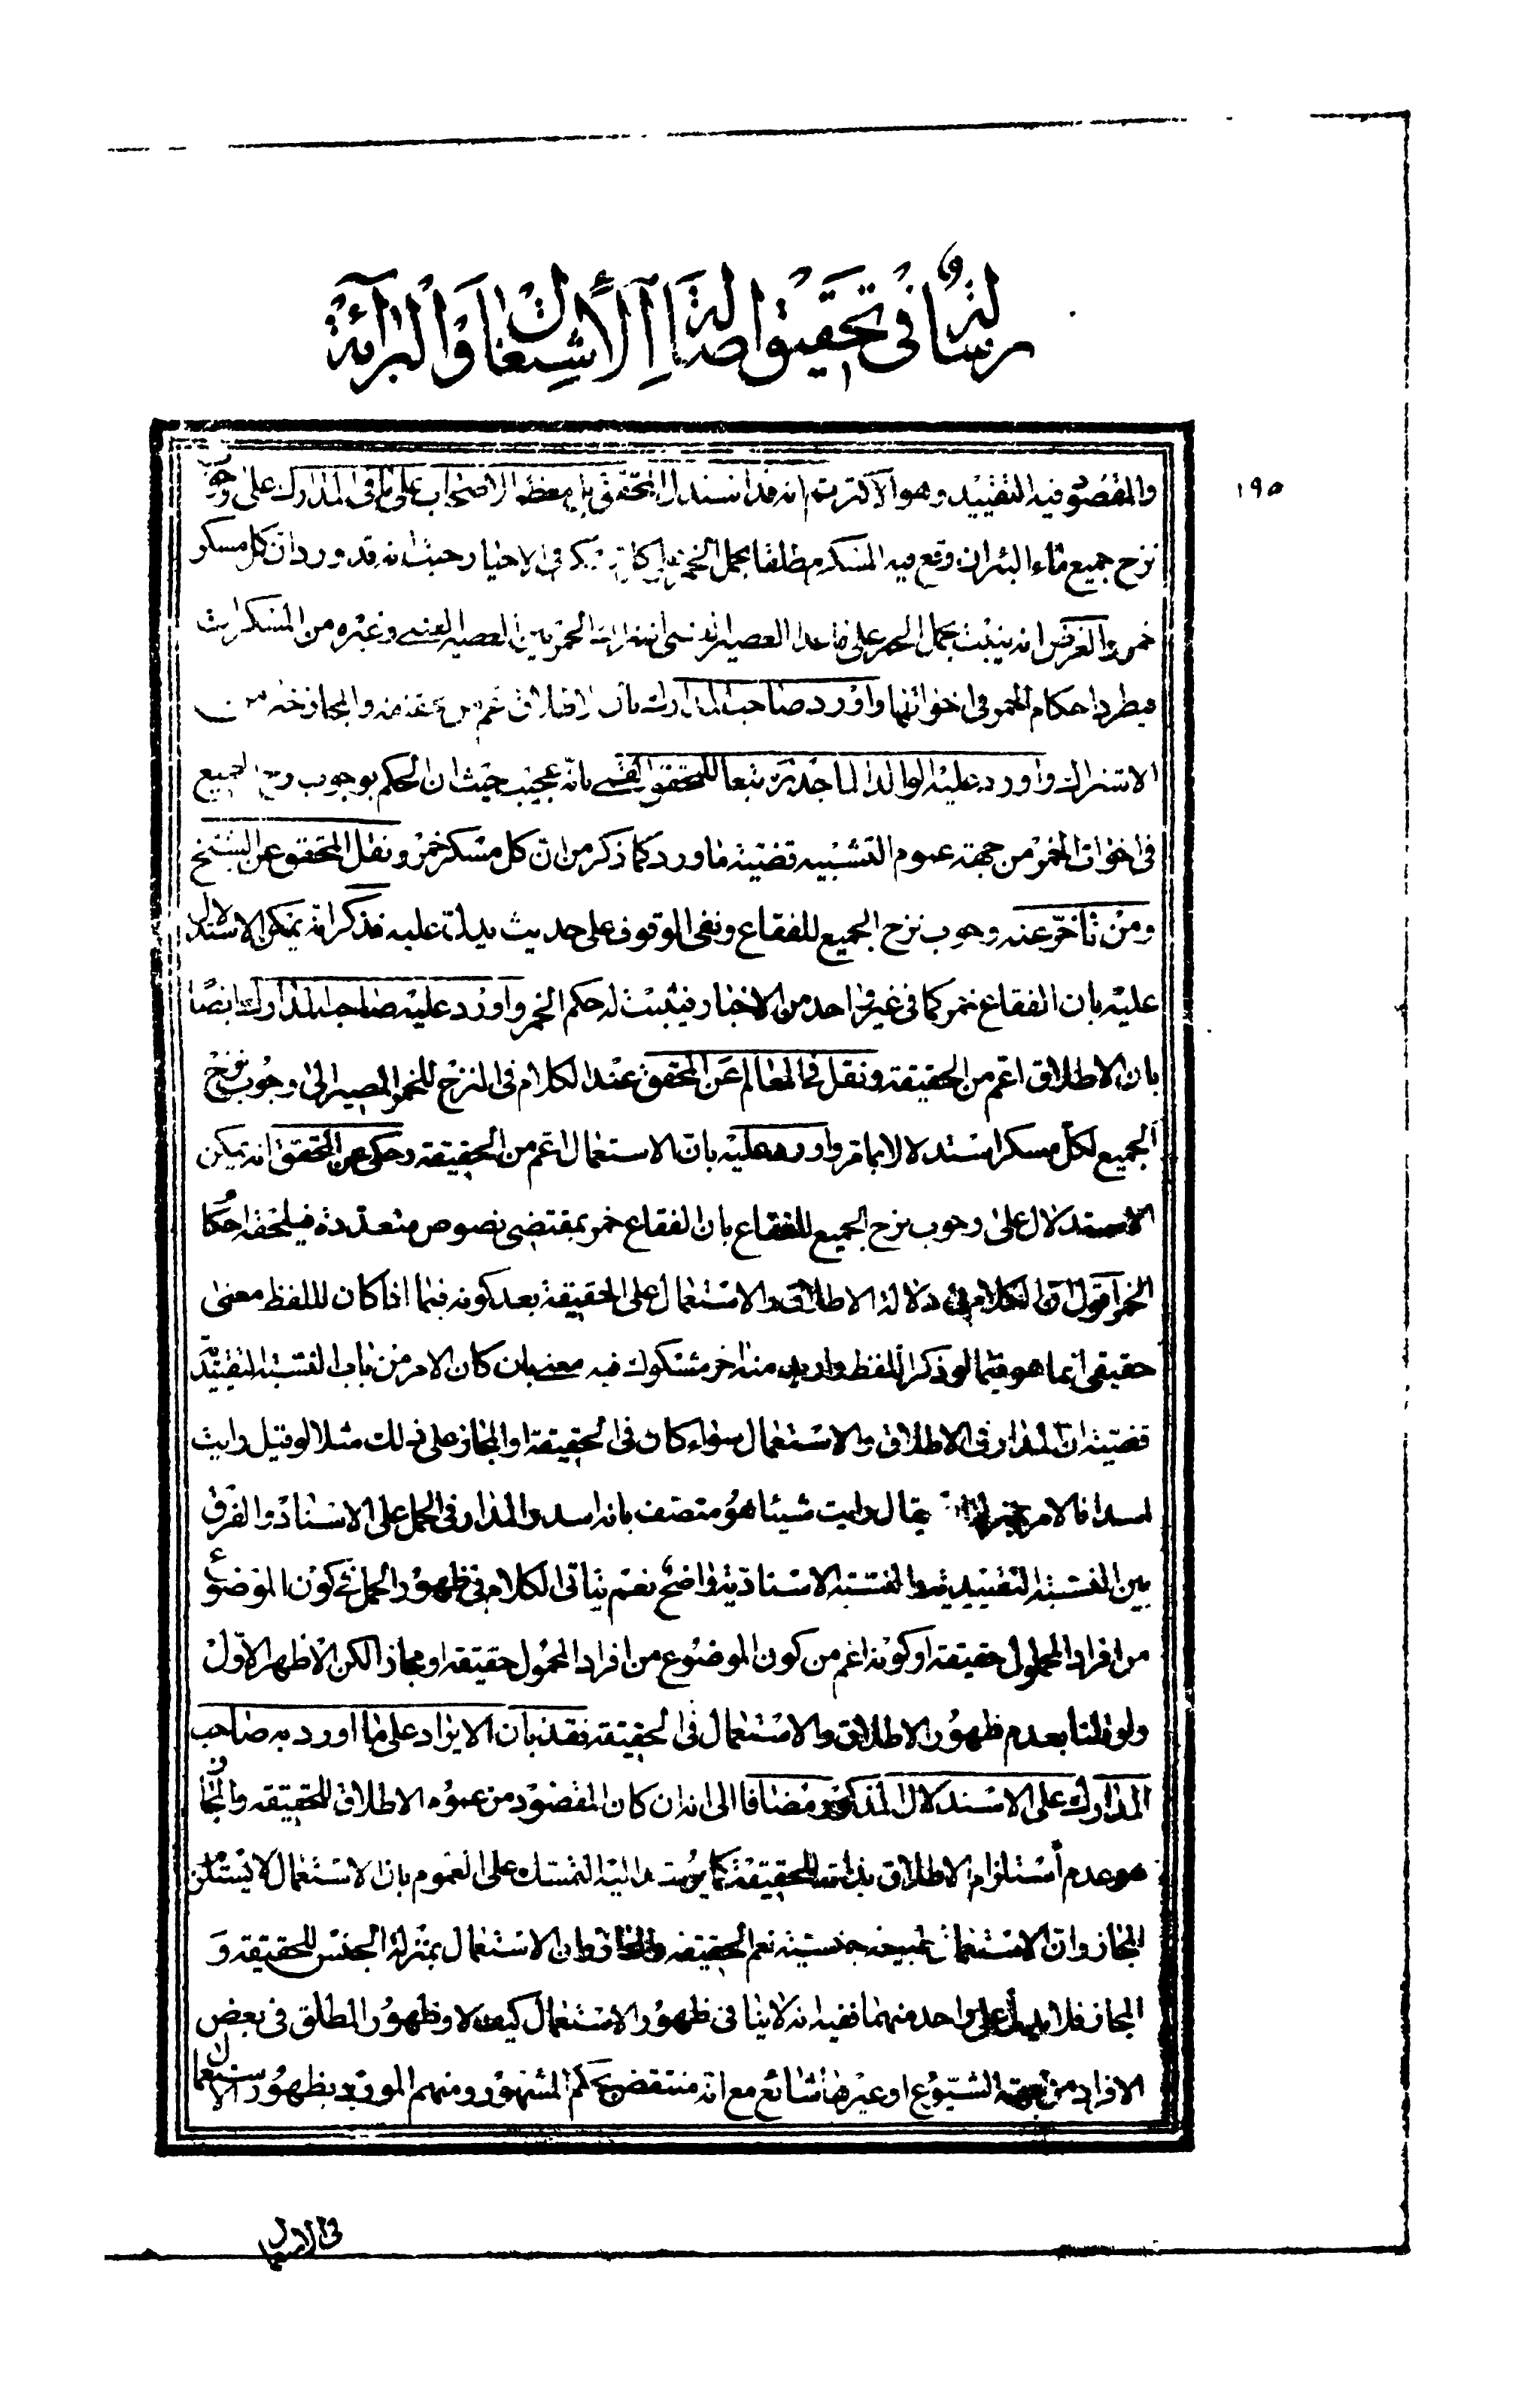 رسالة في تحقيق اصالة الاشتغال والبرائة
١٩٥
والمقصود فيه التقييد وهو الاكثر ثم انه قد استدل المحقق بل معظم الاصحاب على ما في المدارك على وجوب
نزح جميع ماء البئر ان وقع فيه المسكر مطلقا بحمل الخمر على كل مسكر في الاخبار حيث انه قد ورد ان كل مسكر
خمر والغرض انه يثبت بحمل الخمر على ما عدا العصير العنبي وغيره من المسكرات
فيطرد احكام الخمر في اخواتها واورد صاحب المدارك بان الاطلاق اعم من الحقيقة والمجاز خير من
الاشتراك واورد عليه الوالد الماجد ره تبعا للمحقق القمي بانه عجيب حيث ان الحكم بوجوب نزح الجميع
في اخوات الخمر من جهة عموم التشبيه قضية ما ورد كما ذكر من ان كل مسكر خمر ونقل المحقق عن الشيخ
ومن تاخر عنه وجوب نزح الجميع للفقاع ونفى الوقوف على حديث يدل عليه فذكر انه يمكن الاستدلال
عليه بان الفقاع خمر كما في غير واحد من الاخبار فيثبت له حكم الخمر واورد عليه صاحب المدارك ايضا
بان الاطلاق اعم من الحقيقة ونقل في المعالم عن المحقق عند الكلام في النزح للخمر المصير الى وجوب نزح
الجميع لكل مسكر استدلالا بما مر واورد عليه بان الاستعمال اعم من الحقيقة وحكى عن المحقق انه يمكن
الاستدلال على وجوب نزح الجميع للفقاع بان الفقاع خمر بمقتضى نصوص متعددة فيلحقه احكام
الخمر اقول ان الكلام في دلالة الاطلاق والاستعمال على الحقيقة بعد كونه فيما اذا كان لللفظ معنى
حقيقي انما هو فيما لو ذكر اللفظ واريد منه اخر مشكوك فيه معنى بان كان الامر من باب النسبة التقييدية
قضية ان المدار في الاطلاق والاستعمال سواء كان في الحقيقة او المجاز على ذلك مثلا لو قيل رايت
اسدا فالامر بمنزلة ان يقال رايت شيئا هو متصف بانه اسد والمدار في الحمل على الاسناد والفرق
بين النسبة التقييدية والنسبة الاسنادية واضح نعم يتاتى الكلام في ظهور الحمل في كون الموضوع
من افراد المحمول حقيقة او كونه اعم من كون الموضوع من افراد المحمول حقيقة او مجازا لكن الاظهر الاول
ولو قلنا بعدم ظهور الاطلاق والاستعمال في الحقيقة فقد بان الايراد على ما اورد به صاحب
المدارك على الاستدلال المذكور مضافا الى انه ان كان المقصود من عموم الاطلاق للحقيقة والمجاز
هو عدم استلزام الاطلاق بذاته للحقيقة كما يرشد اليه التمسك على العموم بان الاستعمال لا يستلزم
المجاز وان الاستعمال جنسيته نعم الحقيقة والمجاز وان الاستعمال بمنزلة الجنس للحقيقة و
المجاز فلا يدل على واحد منهما ففيه انه لا ينافى ظهور الاستعمال كيف لا وظهور المطلق في بعض
الافراد من جهة الشيوع او غيرها شائع مع انه منتقض بحكم المشهور ومنهم المورد بظهور الاستعمال
في الاستعمال